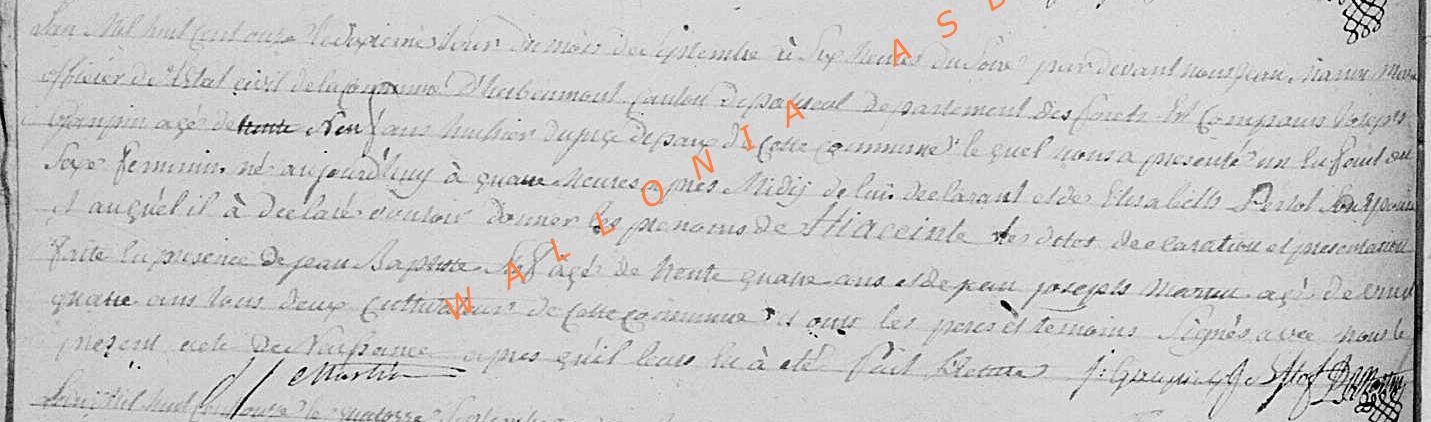 L'an Mil huit Cent onze le dixieme Jour du mois de septembre à Six heures du Soir par devant nous jean Martin Maire
officier de l'Etat civil de la Commune D'herbeumont Canton de paliseul departement des forets Est Comparu Joseph
Graupin agé de trente Neuf ans huissier du juge de paix de Cette Commune lequel nous a presenté un Enfant du
Sexe feminin né aujourd'huy à quatre heures apres Midij de lui declarant et de Elisabeth son Epouse
et auquel il à declaré vouloir donner les prenoms de Hiaceinte les dites declaration et presentation
faitte En presence de jean Baptiste agé de trente quatre ans et de jean joseph Martin agé de
quatre ans tous deux Cultivateurs de Cette Commune et ont les peres et temoins Signés avec nous le
present acte De Naissance apres qu'il leurs En à été fait Lecture
Martin
L'an Mil huit Cent onze le quatorze Septembre
WALLONIA ASD